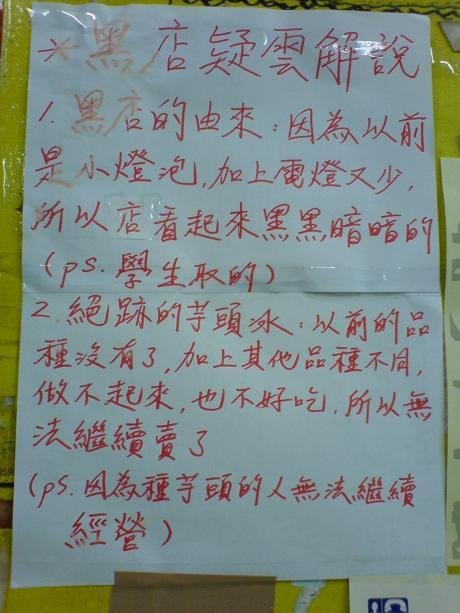 ※黑店疑雲解說
1.黑店的由來:因為以前
是小燈泡,加上電燈又少,
所以店看起來黑黑暗暗的
(ps.學生取的)
2.絕跡的芋頭冰:以前的品
種沒有了,加上其他品種不同,
做不起來,也不好吃,所以無
法繼續賣了
(ps.因為種芋頭的人無法繼續
經營)